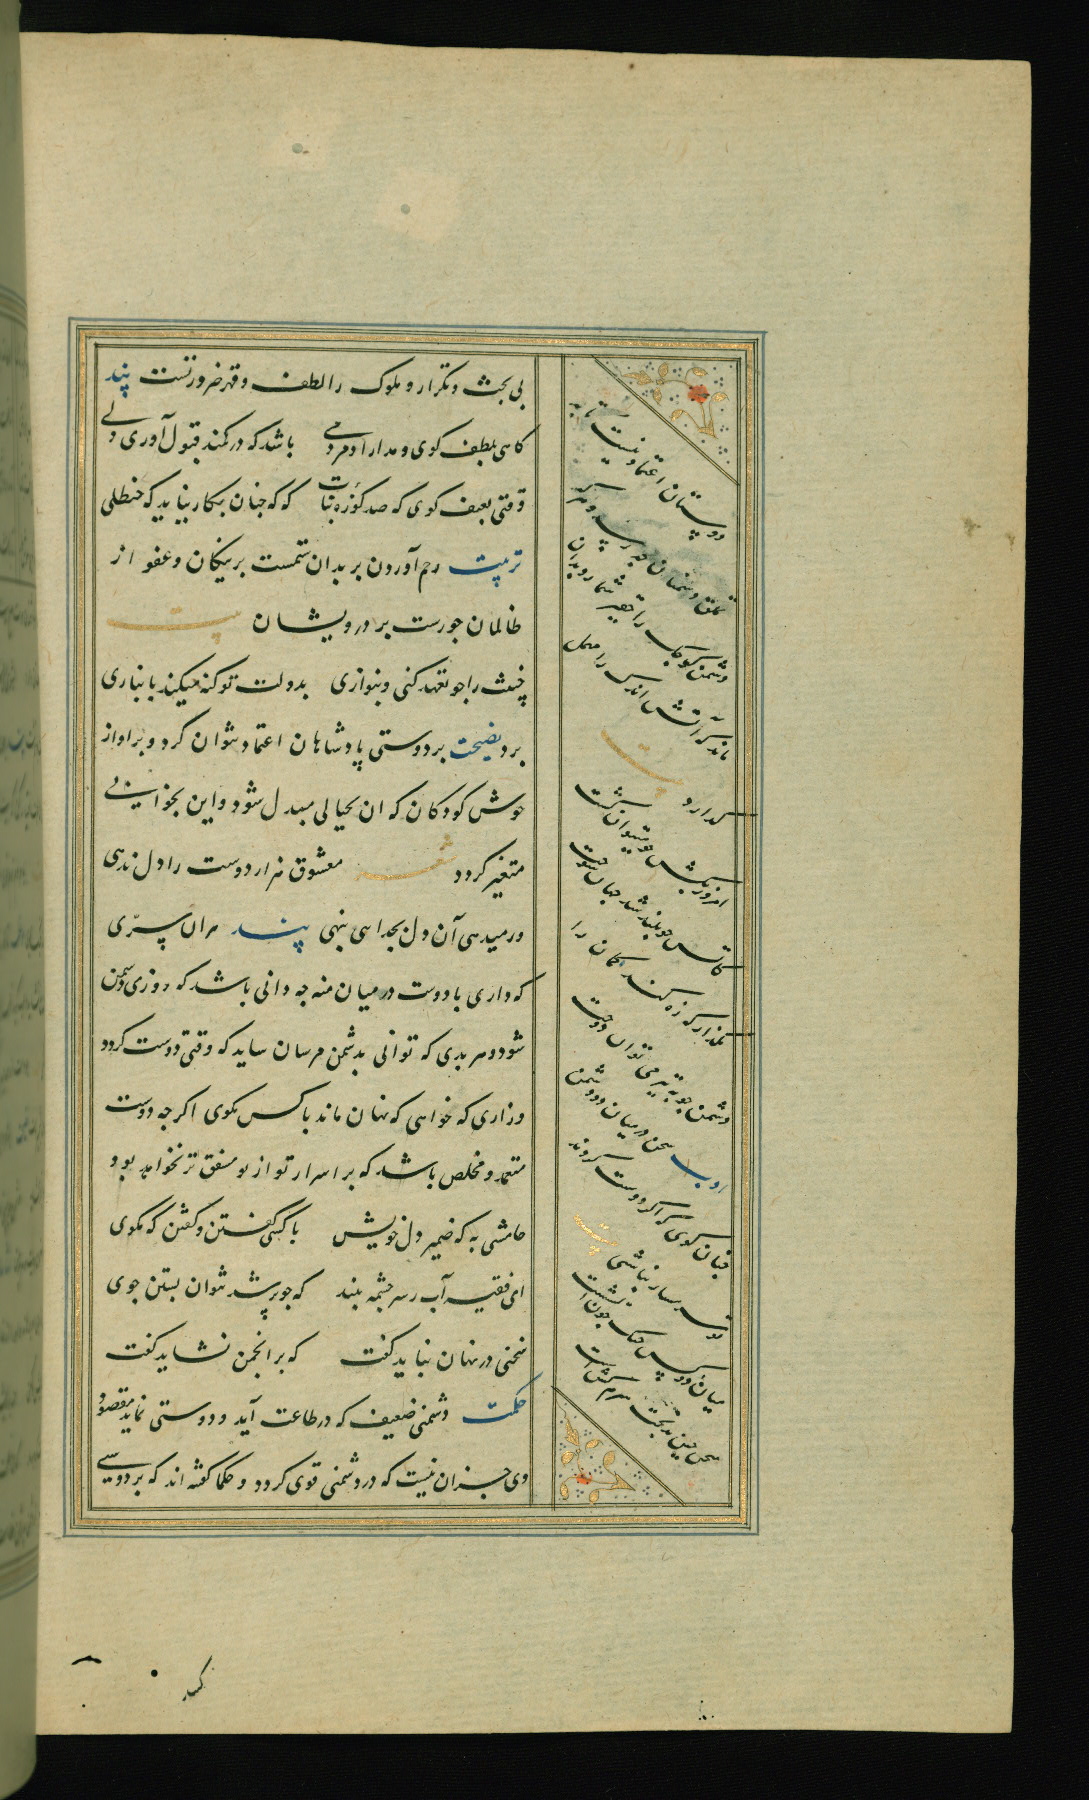 بی بحث و تکرار و ملوک را لطف و قهر ضرورتست پند
کاهی بلطف کوی و مدارا و مردمی باشد که در کمند قبول آوری دلی
وقتی بعنف کوی که صد کوزه نبات که که چنان بکار نیاید که حنظلی
تربیت رحم آوردن بر بدان ستمست بر نیکان و عفو از
ظالمان جورست بر درویشان بیت
خبیث را جو تعهد کنی و بنوازی بدولت تو کنه میکند بانبازی
برد نصیحت بر دوستی پادشاهان اعتماد نتوان کرد و بر اواز
خوش کودکان که ان بخیالی مبدل شود و این بخوابی
متغیر کردد شعر معشوق هزار دوست را دل ندهی
ور میدهی آن دل بجدایی بنهی پند هر ان سری
که داری با دوست در میان منه جه دانی باشد که روزی دشمن
شود و هر بدی که توانی بدشمن مرسان شاید که وقتی دوست کردد
و رازی که خواهی که نهان ماند با کس مکوی اکر جه دوست
معتمد و مخلص باشد که بر اسرار تو از تو مشفق تر نخواهد بود
خامشی به که ضمیر دل خویش با کسی کفتن و کفتن که مکوی
ای فقیه آب ز سر جشمه ببند که جو پر شد نتوان بستن جوی
سخنی در نهان نباید کفت که بر انجمن نشاید کفت
حکمت دشمنی ضعیف که در طاعت آید و دوستی نماید مقصود
وی جز ان نیست که در دشمنی قوی کردد و حکما کفته اند که بر دوستی
دوستان اعتماد نیست تا به
تملق دشمنان چه رسد و هر که
دشمن کوچک را حقیر شمارد بدان
ماند که آتش اندک را مهمل
کذارد بیت
امروز بکش جو میتوان کشت
کاتش جو بلند شد جهان سوخت
مکذار که زه کند کمان را
دشمن جو به تیر می توان دوخت
ادب سخن در میان دو دشمن
چنان کوی که اکر دوست کردند
تو شرمسار نباشی بیت
میان دو کس جنک جون آتشست
سخن چین بدبخت هیزم کشست